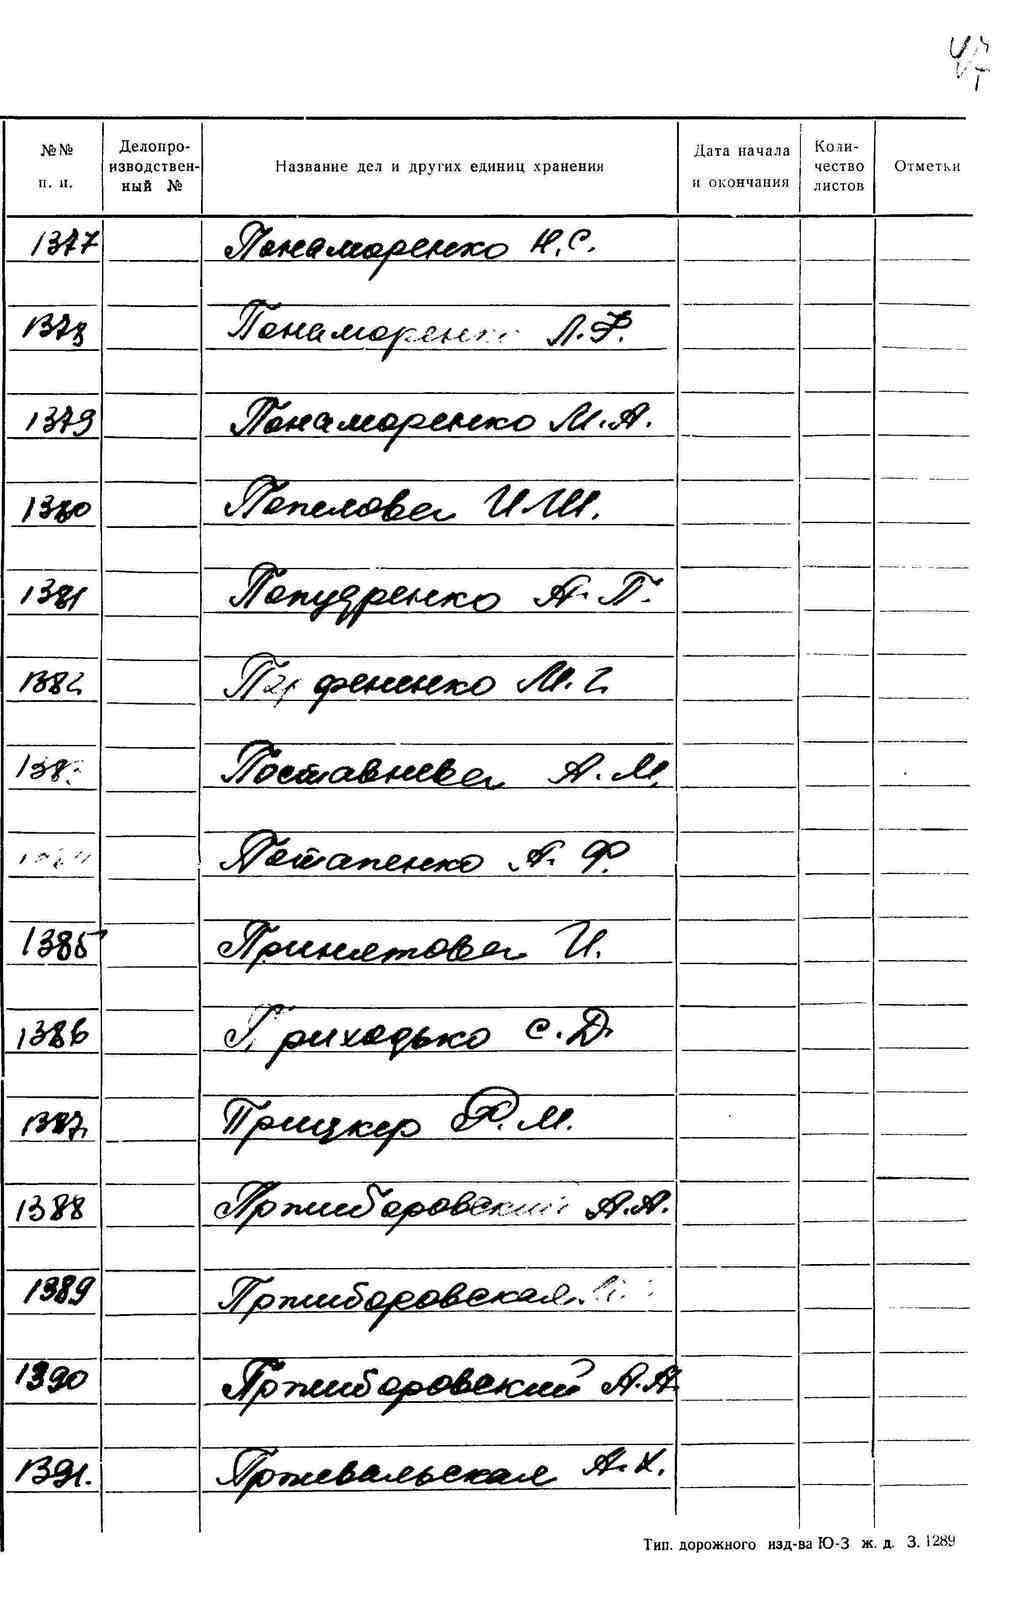 №№ п. п. Делопроизводственный № Название дел и других единиц хранения Дата начала и окончания Количество листов Отметки
1377 Понаморенко Н.С.
1378 Понаморенко Л.Ф.
1379 Понаморенко М.А.
1380 Попелова И.Ш.
1381 Попудренко А.П.
1382 фененко М.Г.
138 Поставнева А.М.
Потапенко А.Ф.
1385 Принятова И.
1386 Приходько С.Д.
1387 Прицкер Р.М.
1388 Пржиборовский А.А.
1389 Пржиборовская
1390 Пржиборовский А.А.
1391. Пржевальская А.Х.
Тип. дорожного изд-ва Ю-З ж. д. З. 1289